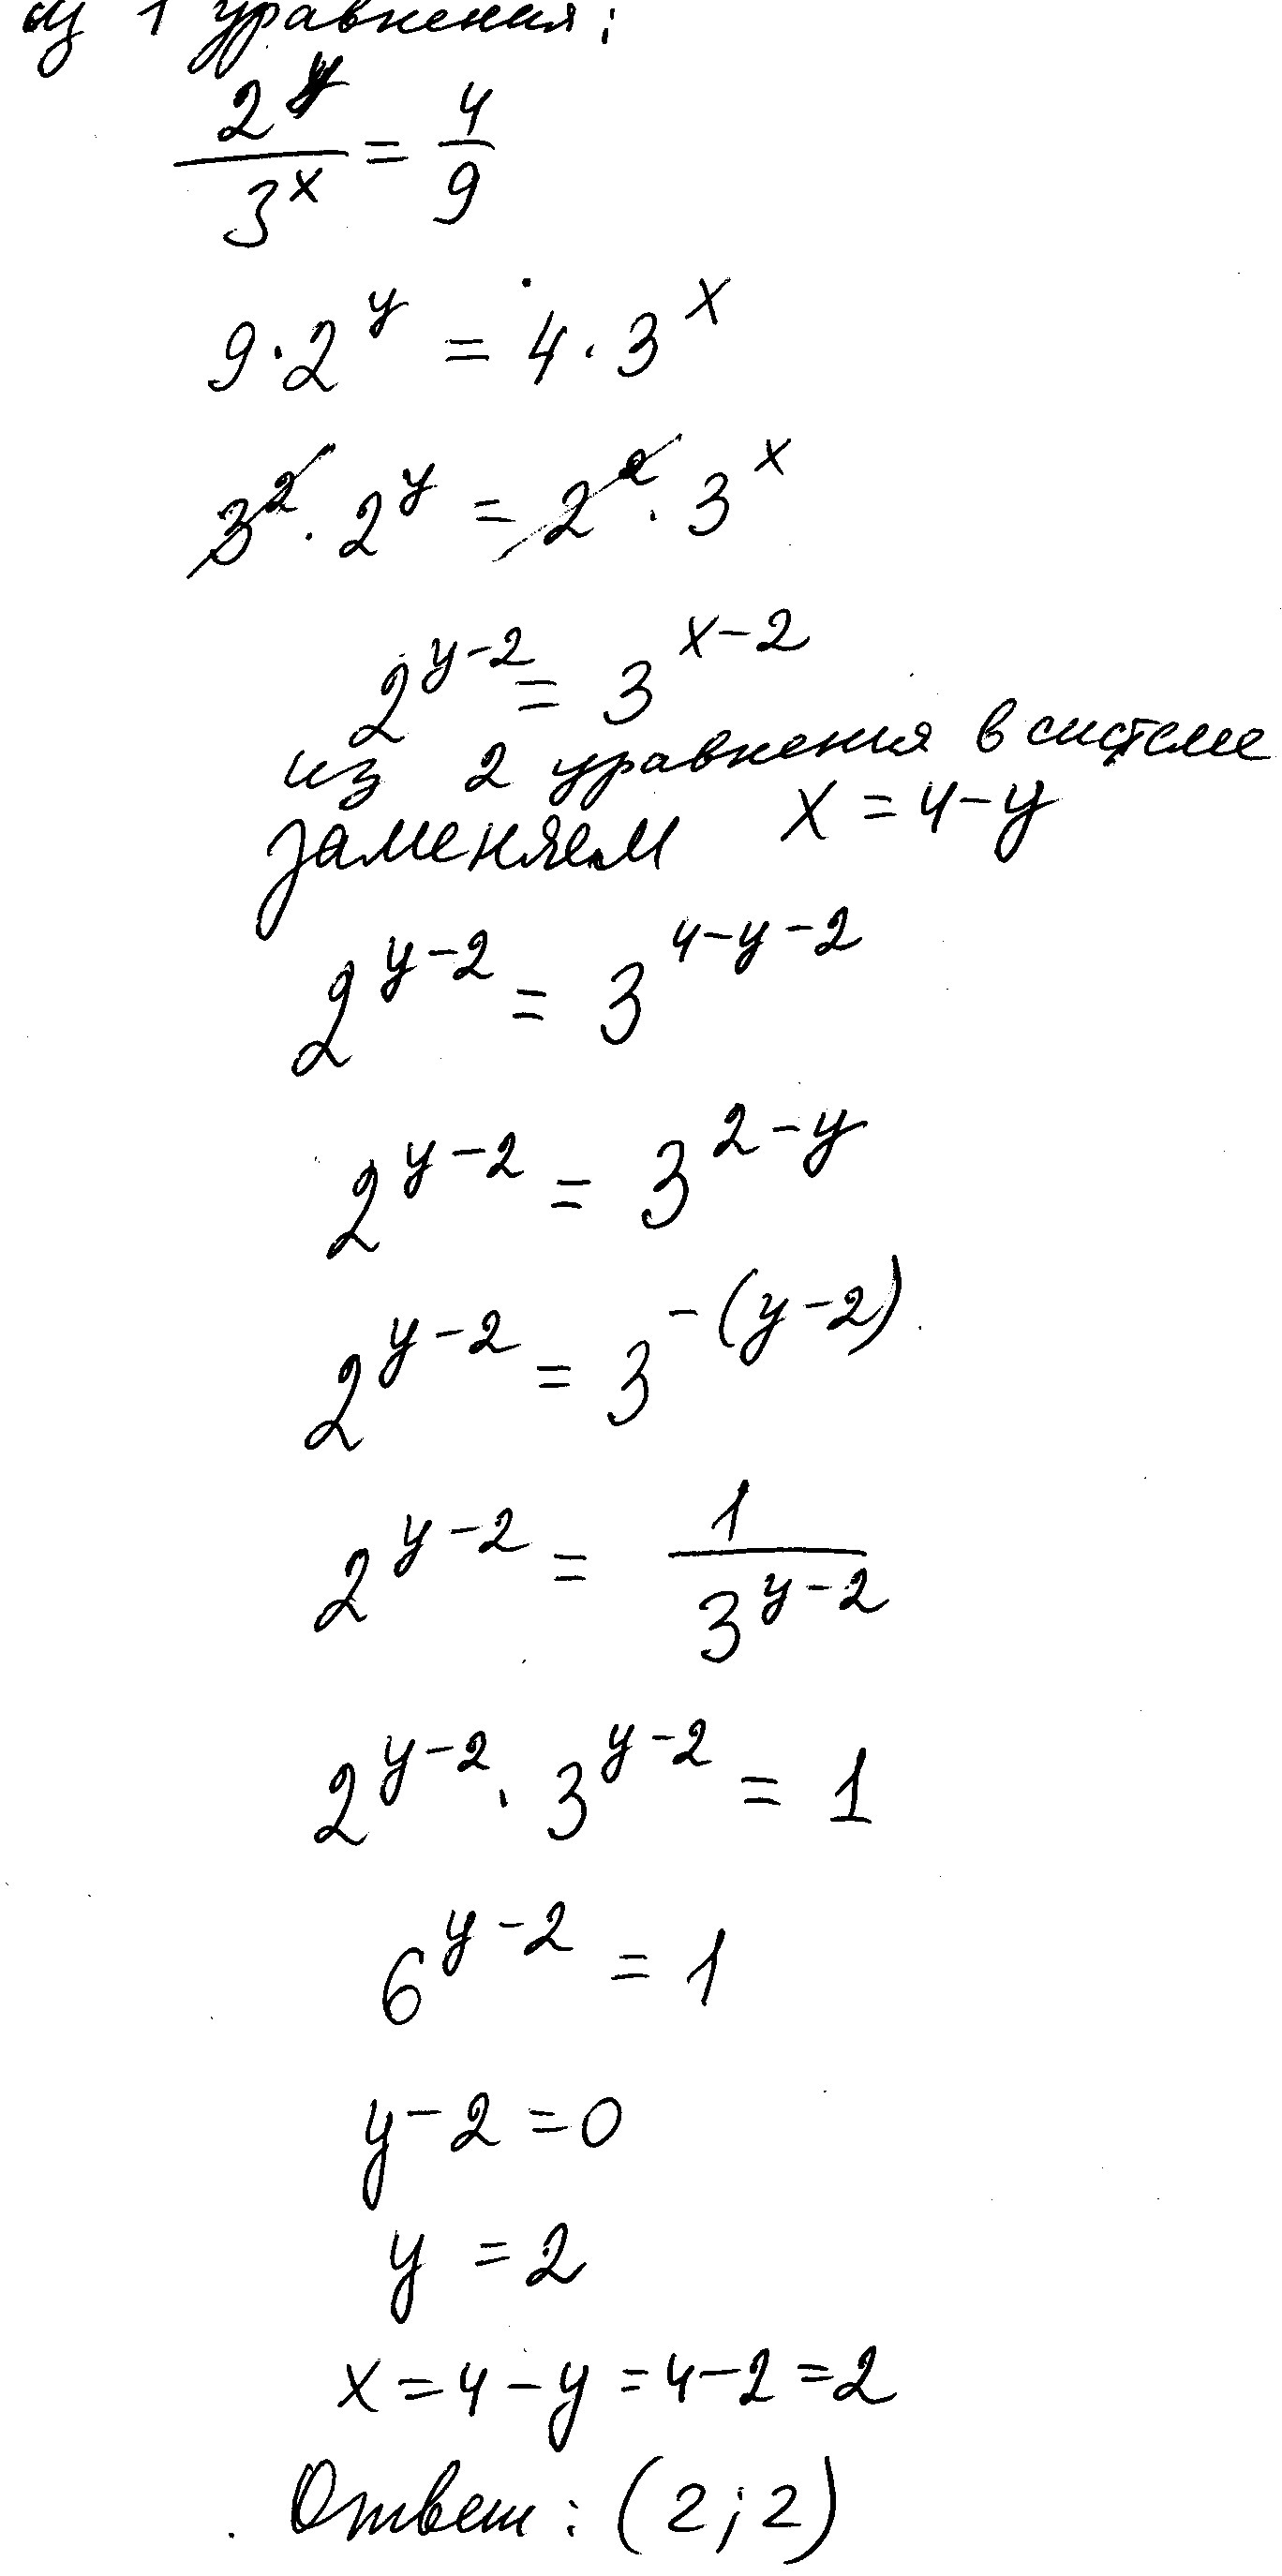 из 1 уравнения:
2^y / 3^x = 4/9
9 · 2^y = 4 · 3^x
3^2 · 2^y = 2^2 · 3^x
2^(y-2) = 3^(x-2)
из 2 уравнения в системе
заменяем x = 4-y
2^(y-2) = 3^(4-y-2)
2^(y-2) = 3^(2-y)
2^(y-2) = 3^(-(y-2))
2^(y-2) = 1 / 3^(y-2)
2^(y-2) · 3^(y-2) = 1
6^(y-2) = 1
y-2 = 0
y = 2
x = 4-y = 4-2 = 2
Ответ: (2; 2)